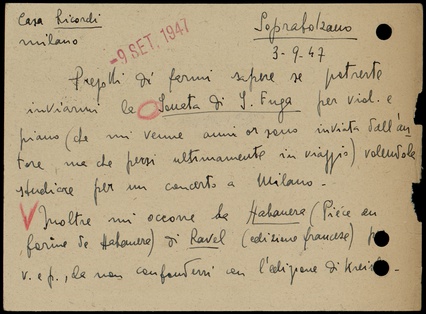 Casa Ricordi
milano
-9 SET. 1947
Soprabolzano
3-9.47
Pregovi di farmi sapere se potreste
inviarmi la Sonata di S. Fuga per viol. e
piano (che mi venne anni or sono inviata dall'au-
tore, ma che persi ultimamente in viaggio) volendola
studiare per un concerto a Milano.-
Inoltre mi occorre la Habanera (Pièce en
forme de Habanera) di Ravel (edizione francese) p.
v. e p., da non confondersi con l'edizione di Kreisl